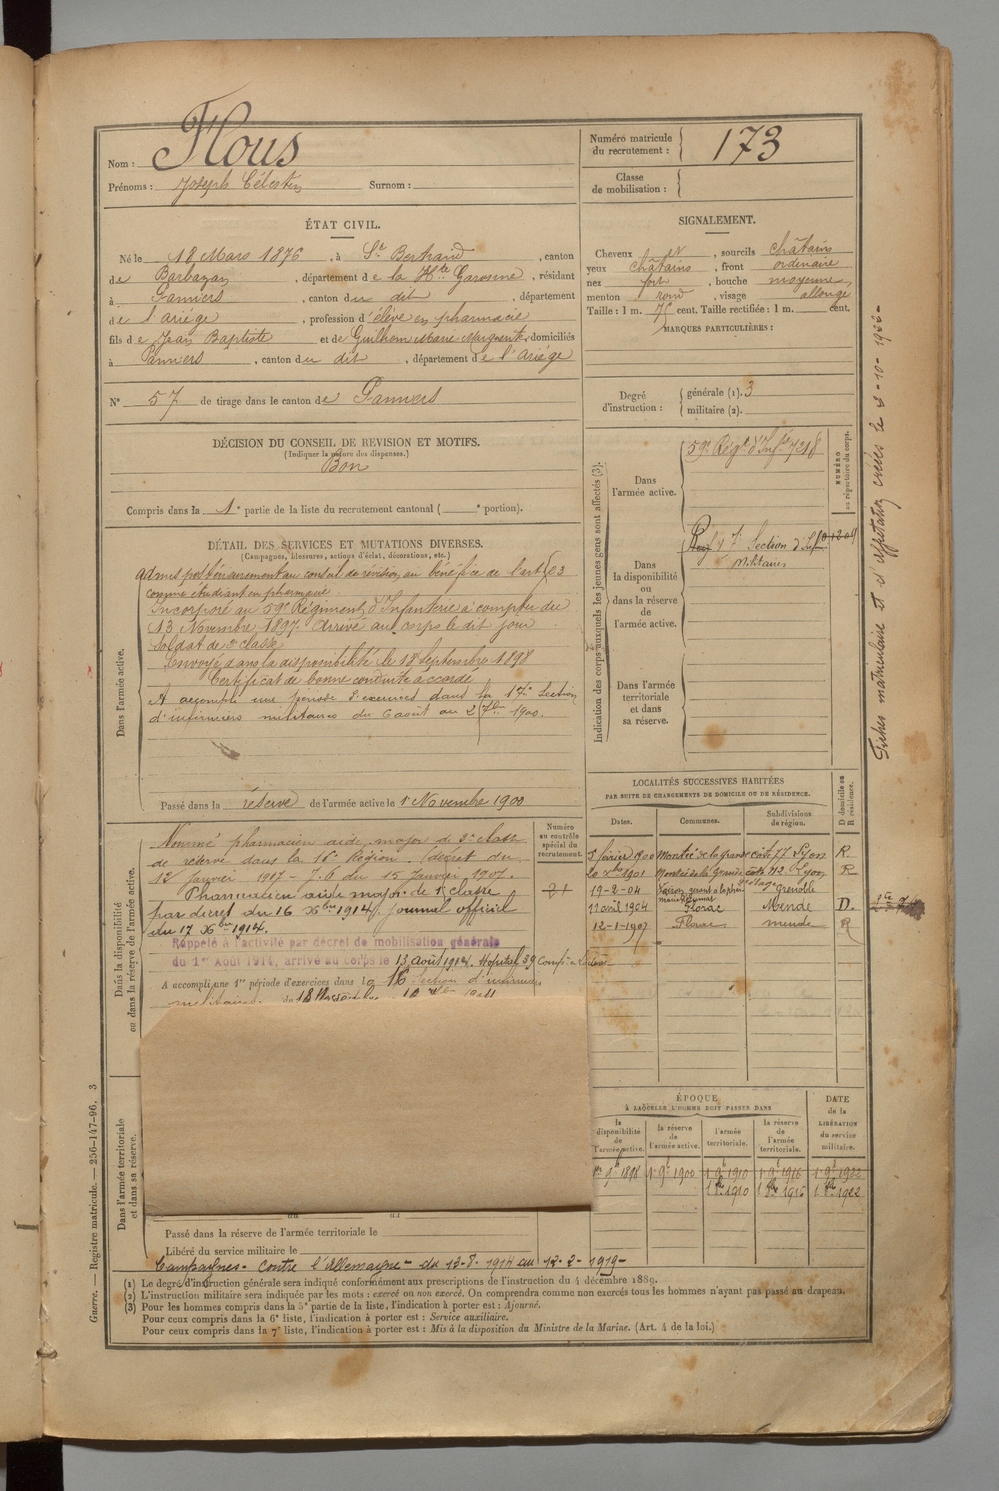 Nom : Flous
Prénoms : Joseph Célestin Surnom :
Numéro matricule du recrutement : 173
Classe de mobilisation :
ÉTAT CIVIL.
Né le 18 Mars 1876, à St Bertrand, canton
de Barbazan, département de la Hte Garonne, résidant
à Pamiers, canton du dit, département
de l'ariége, profession d'élève en pharmacie
fils de Jean Baptiste et de Guilhem Marie Marguerite domiciliés
à Pamiers, canton du dit, département de l'ariége
N° 57 de tirage dans le canton de Pamiers
SIGNALEMENT.
Cheveux, sourcils châtains
yeux châtains, front ordinaire
nez fort, bouche moyenne,
menton rond, visage allongé
Taille : 1 m. 75 cent. Taille rectifiée : 1 m. cent.
MARQUES PARTICULIÈRES :
Degré d'instruction : générale (1). 3
militaire (2).
DÉCISION DU CONSEIL DE REVISION ET MOTIFS.
(Indiquer la nature des dispenses.)
Bon
Compris dans la 1e partie de la liste du recrutement cantonal ( e portion).
DÉTAIL DES SERVICES ET MUTATIONS DIVERSES.
(Campagnes, blessures, actions d'éclat, décorations, etc.)
Dans l'armée active.
admis postérieurement au conseil de révision au bénéfice de l'art 23
comme étudiant en pharmacie
Incorporé au 59e Régiment d'Infanterie à compter du
13 Novembre 1897. Arrivé au corps le dit jour
soldat de 2e classe
Envoyé dans la disponibilité le 18 septembre 1898
Certificat de bonne conduite accordé
A accompli une période d'exercices dans la 17e Section
d'infirmiers militaires du 6 août au 2 7bre 1900.
Passé dans la réserve de l'armée active le 1 Novembre 1900
Indication des corps auxquels les jeunes gens sont affectés (3).
NUMÉRO au répertoire du corps.
Dans l'armée active.
59e Régt d'Infie 7218
Dans la disponibilité ou dans la réserve de l'armée active.
17e Section d'Inf
Militaires
Dans l'armée territoriale et dans sa réserve.
Fiches matriculaire et d'affectation créées le
Dans la disponibilité ou dans la réserve de l'armée active.
Numéro au contrôle spécial du recrutement.
21
Nommé pharmacien aide major de 2e classe
de réserve dans la 16e Région. (décret du
12 janvier 1907 - J.O. du 15 Janvier 1907.
Pharmacien aide major de 1e classe
par decret du 16 Xbre 1914. Journal officiel
du 17 Xbre 1914.
Rappelé à l'activité par décret de mobilisation générale
du 1er Août 1914, arrivé au corps le 13 août 1914. Hopital 39
A accompli une 1re période d'exercices dans la 16 Section d'infirmiers
militaires.
LOCALITÉS SUCCESSIVES HABITÉES
PAR SUITE DE CHANGEMENTS DE DOMICILE OU DE RÉSIDENCE.
Dates. Communes. Subdivisions de région. D domicile ou R résidence.
5 février 1900 Montée de la grande côte 77 Lyon R.
20 Xbre 1901 Montée de la Grande côte 112 Lyon R
19-2-04 Grenoble
11 avril 1904 Florac Mende D.
12-1-1907 Florac mende R
ÉPOQUE
À LAQUELLE L'HOMME DOIT PASSER DANS
DATE de la LIBÉRATION du service militaire.
la disponibilité de l'armée active. la réserve de l'armée active. l'armée territoriale. la réserve de l'armée territoriale.
1898 1 9bre 1900 1 9bre 1910 1 9bre 1916 1 9bre 1922
1 8bre 1910 1 8bre 1916 1 8bre 1922
Dans l'armée territoriale et dans sa réserve.
Passé dans la réserve de l'armée territoriale le
Libéré du service militaire le
Campagnes - contre l'Allemagne - du 13-8-1914 au 12-2-1919-
(1) Le degré d'instruction générale sera indiqué conformément aux prescriptions de l'instruction du 4 décembre 1889.
(2) L'instruction militaire sera indiquée par les mots : exercé ou non exercé. On comprendra comme non exercés tous les hommes n'ayant pas passé au drapeau.
(3) Pour les hommes compris dans la 5e partie de la liste, l'indication à porter est : Ajourné.
Pour ceux compris dans la 6e liste, l'indication à porter est : Service auxiliaire.
Pour ceux compris dans la 7e liste, l'indication à porter est : Mis à la disposition du Ministre de la Marine. (Art. 4 de la loi.)
Guerre. — Registre matricule. — 256-147-96. 3